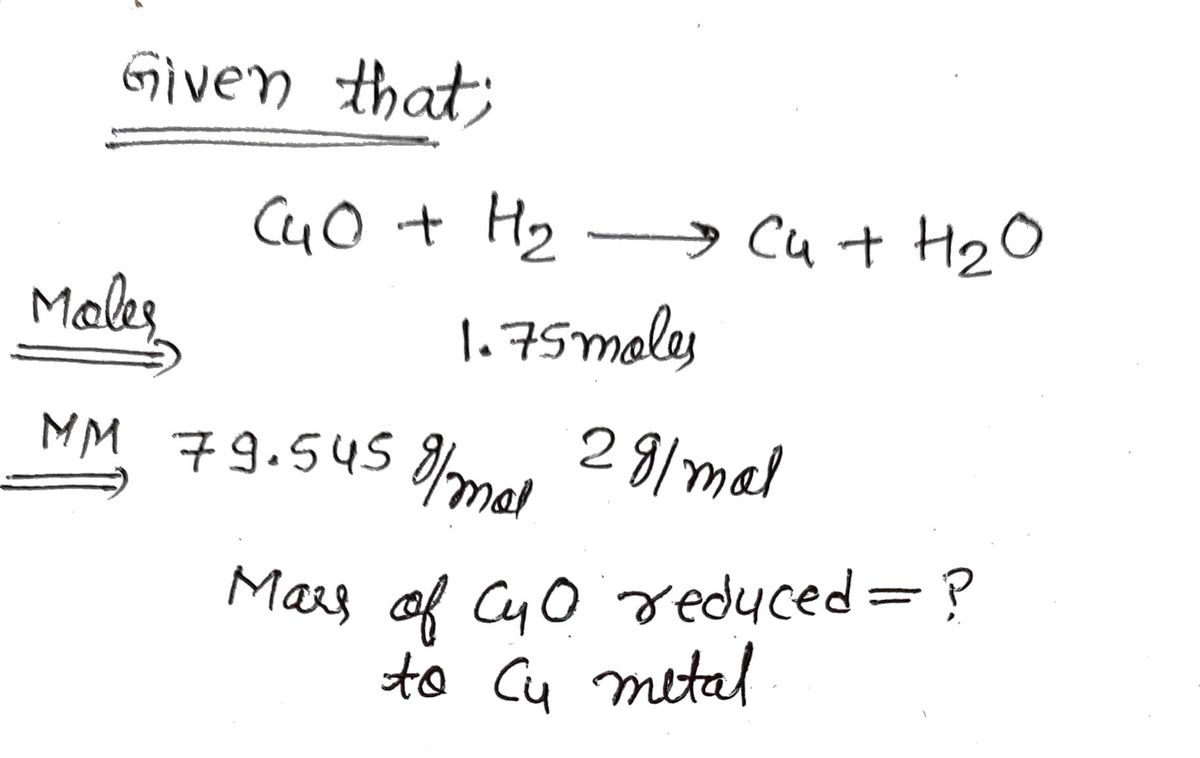 Given that;
CuO + H2 → Cu + H2O
Moles 1.75 moles
MM 79.545 g/mol 2 g/mol
Mass of CuO reduced = ?
to Cu metal